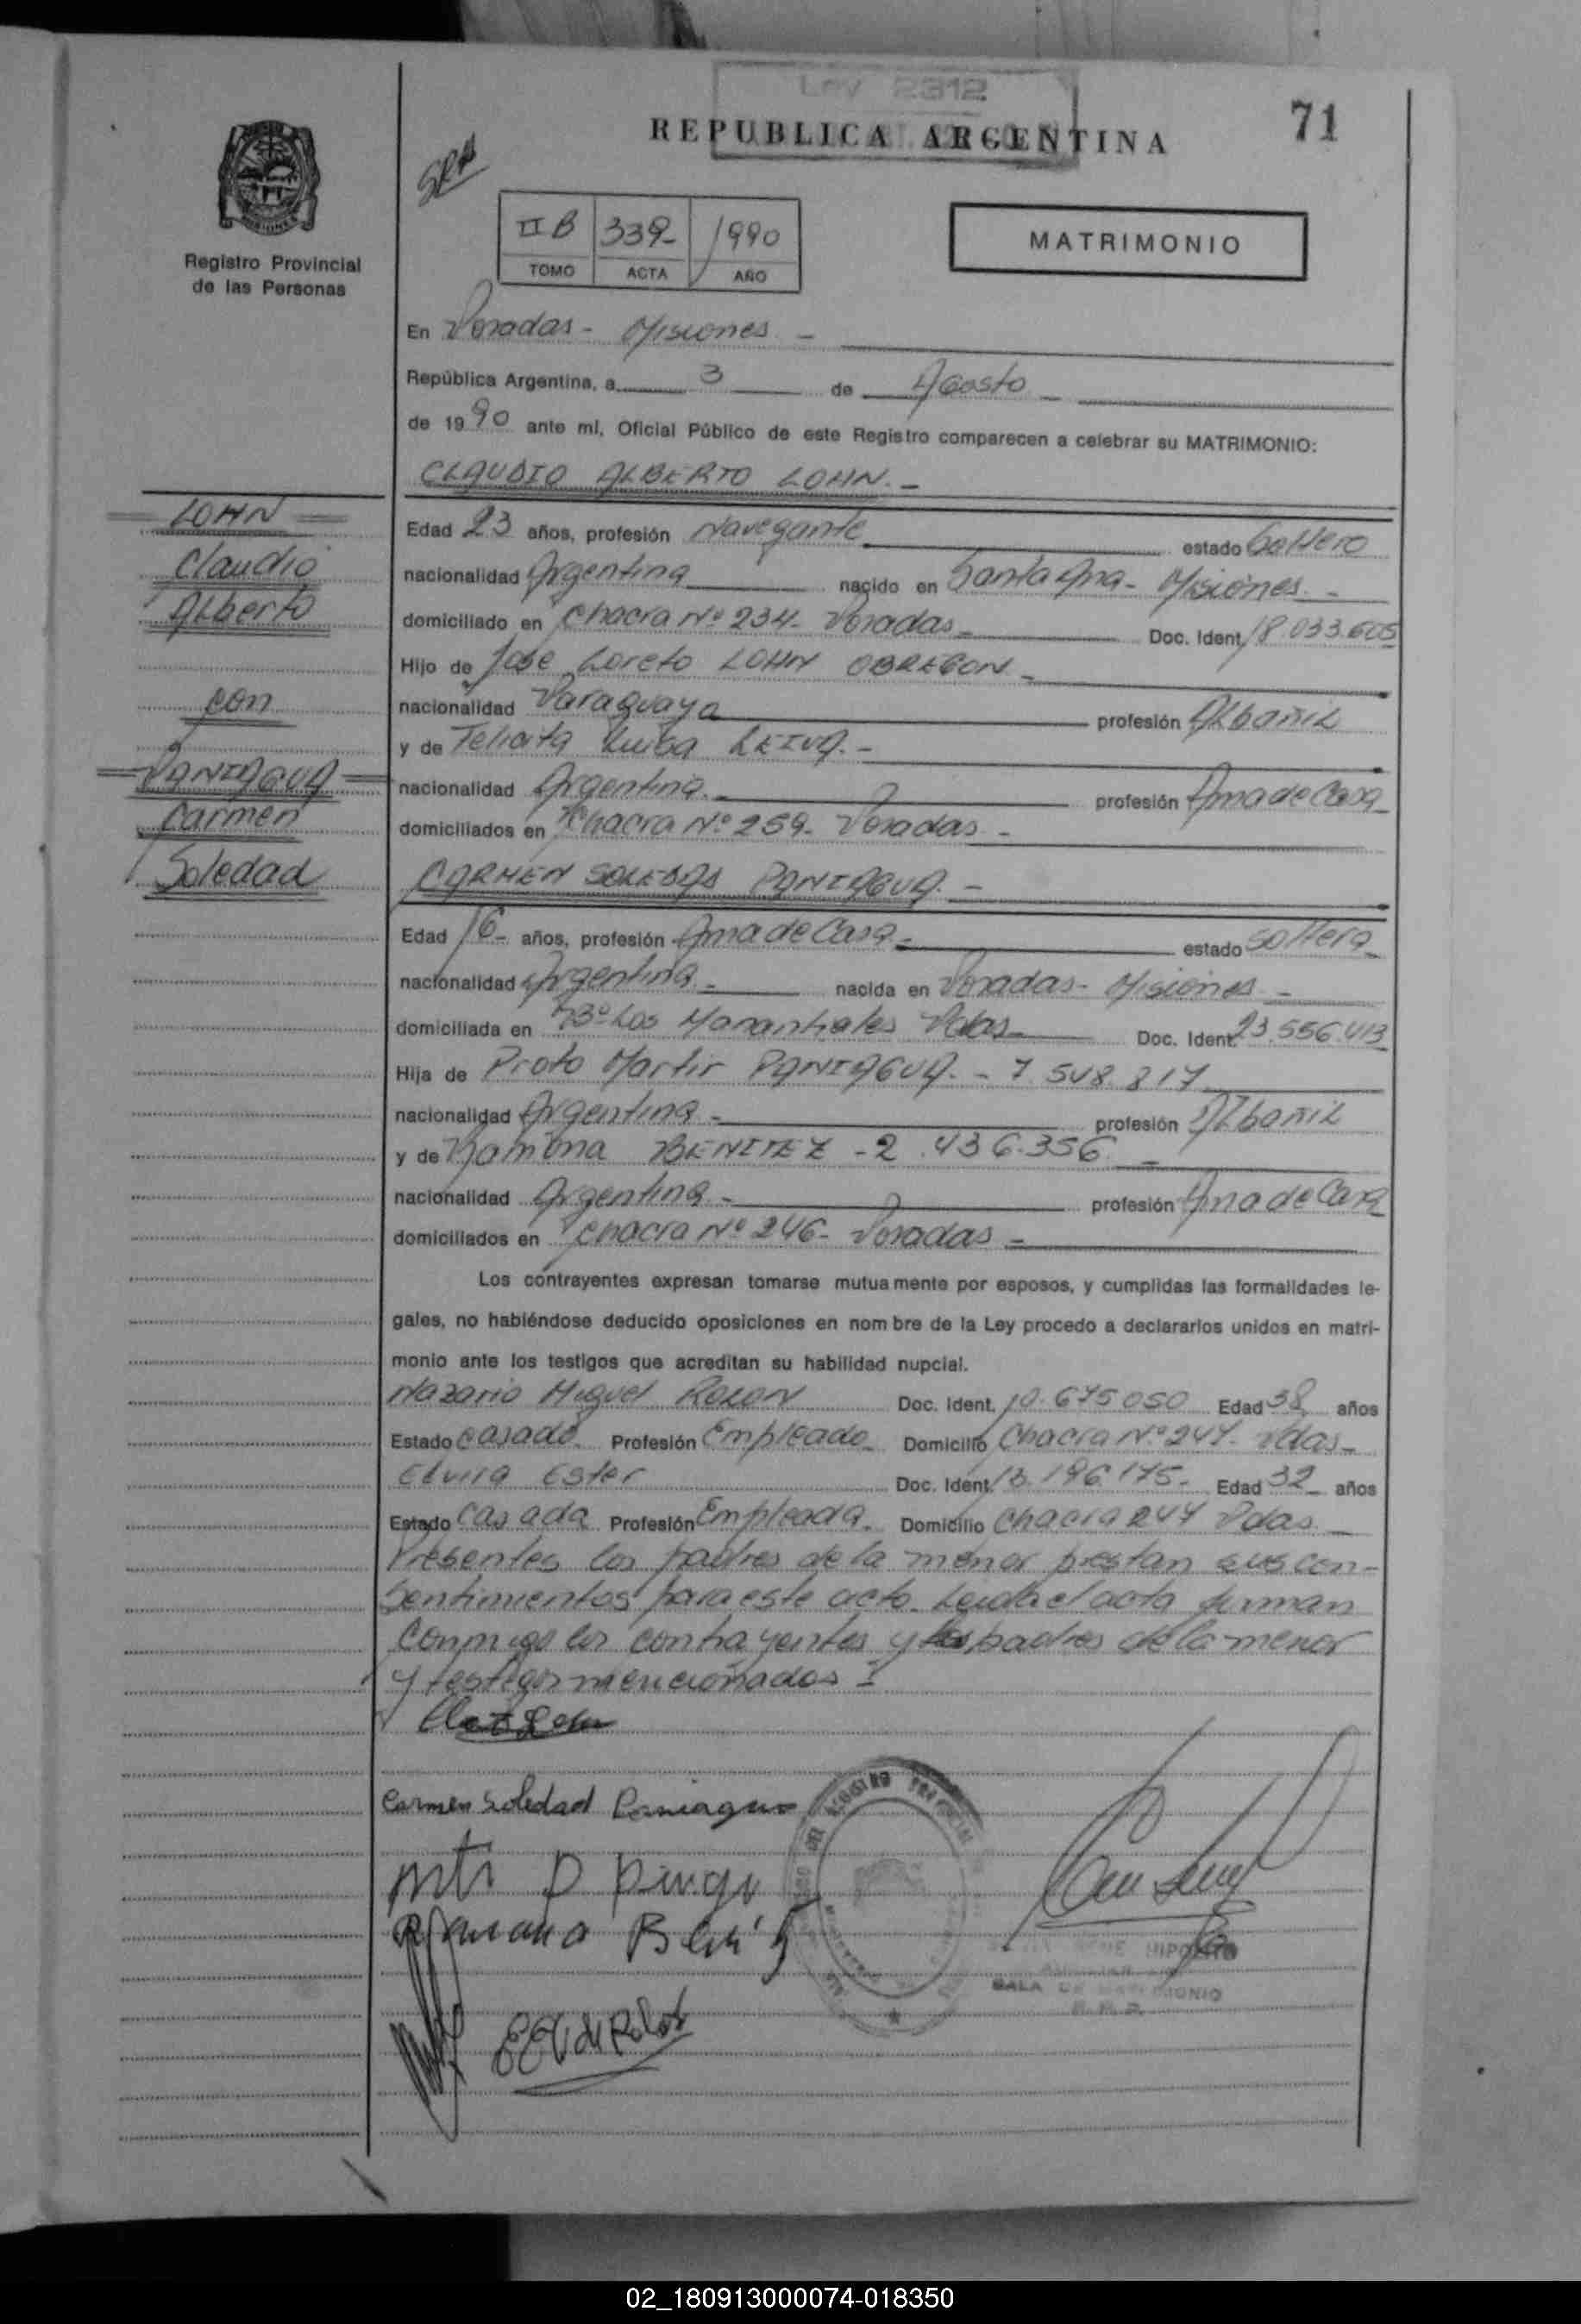 Ley 2312
REPUBLICA ARGENTINA
71
Registro Provincial
de las Personas
II B 339- 1990
TOMO ACTA AÑO
MATRIMONIO
En Posadas - Misiones -
República Argentina, a 3 de Agosto
de 1990 ante mí, Oficial Público de este Registro comparecen a celebrar su MATRIMONIO:
CLAUDIO ALBERTO LOHN.-
LOHN
Claudio
Alberto
con
PANIAGUA
Carmen
Soledad
Edad 23 años, profesión Navegante estado Soltero
nacionalidad Argentina nacido en Santa Ana - Misiones.-
domiciliado en Chacra Nº 234- Posadas- Doc. Ident. 18.033.605
Hijo de José Loreto LOHN OBREGON.-
nacionalidad Paraguaya profesión Albañil
y de Felicita Luisa LEIVA.-
nacionalidad Argentina.- profesión Ama de Casa
domiciliados en Chacra Nº 259- Posadas -
CARMEN SOLEDAD PANIAGUA.-
Edad 16- años, profesión Ama de Casa- estado Soltera
nacionalidad Argentina.- nacida en Posadas - Misiones -
domiciliada en Bº Los Manantiales Pdas- Doc. Ident. 23.556.413
Hija de Proto Martir PANIAGUA.- 7.548.817
nacionalidad Argentina - profesión Albañil
y de Ramona BENITEZ - 2.436.356. -
nacionalidad Argentina - profesión Ama de Casa
domiciliados en Chacra Nº 246- Posadas -
Los contrayentes expresan tomarse mutuamente por esposos, y cumplidas las formalidades le-
gales, no habiéndose deducido oposiciones en nombre de la Ley procedo a declararlos unidos en matri-
monio ante los testigos que acreditan su habilidad nupcial.
Nazario Miguel ROLON Doc. Ident. 10.675.050 Edad 38 años
Estado Casado Profesión Empleado Domicilio Chacra Nº 247- Pdas-
Elvira Ester Doc. Ident. 13.196.175- Edad 32 años
Estado Casada Profesión Empleada. Domicilio Chacra 247 Pdas.
Presentes los padres de la menor prestan sus con-
sentimientos para este acto. Leida el acta firman
conmigo los contrayentes y los padres de la menor
y testigos mencionados
Carmen Soledad Paniagua
HIPOLITO
SALA DE MATRIMONIO
02_180913000074-018350